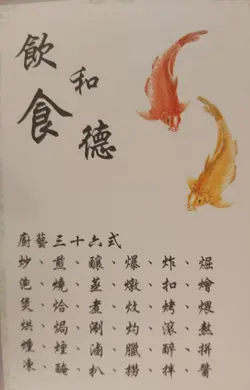 飲和
食德
廚藝三十六式
炒、煎、釀、爆、炸、
泡、燒、蒸、燉、扣、燴
煲、烚、煮、炆、烤、煨
烘、焗、涮、灼、滾、
燻、煙、滷、臘、醉、拼
凍、酶、扒、撈、拌、